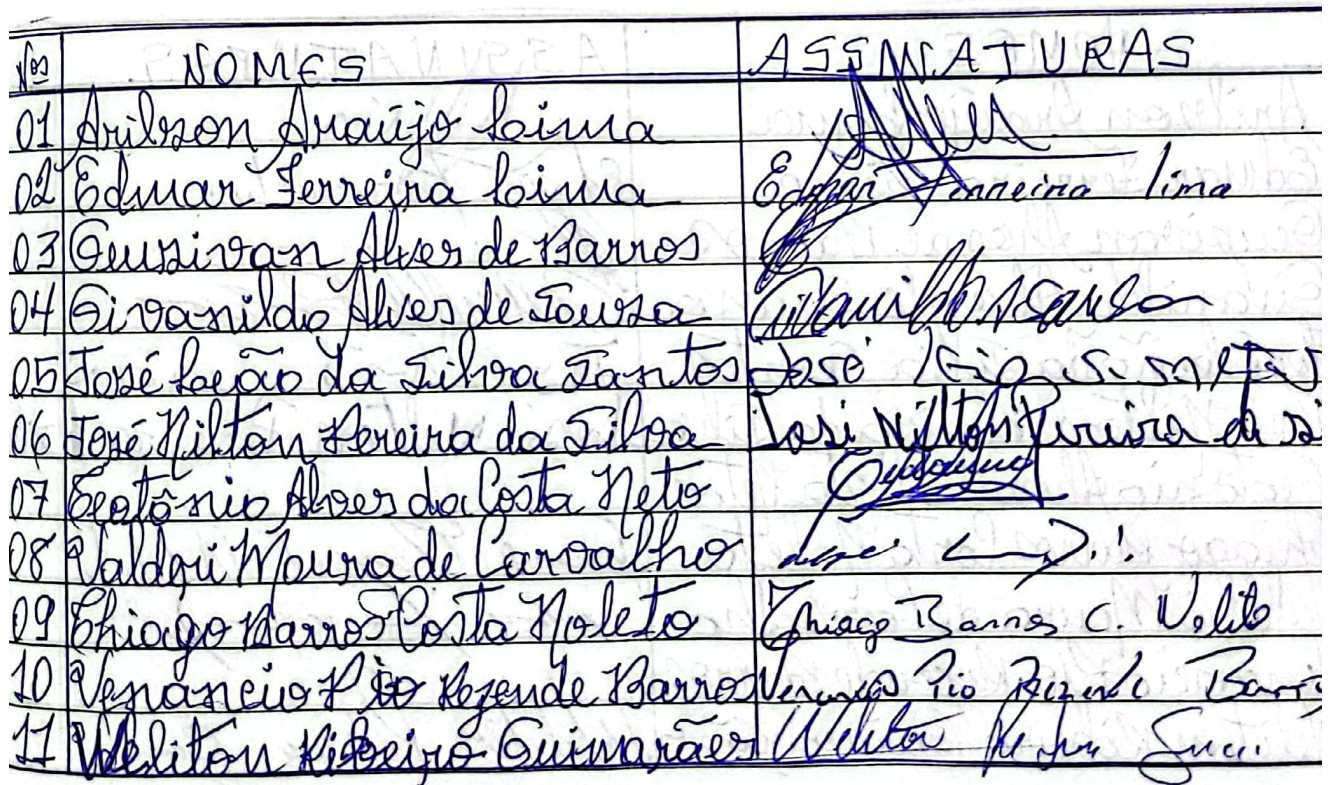 Nos NOMES ASSINATURAS
01 Arilson Araújo Lima
02 Edmar Ferreira Lima Edmar Ferreira lima
03 Geusivan Alves de Barros
04 Givanildo Alves de Souza
05 José Leão da Silva Santos José
06 José Nilton Pereira da Silva José Nilton Pereira da Si
07 Teotônio Alves da Costa Neto
08 Valdeci Moura de Carvalho
09 Thiago Barros Costa Noleto Thiago Barros C. Noleto
10 Venâncio Pio Rezende Barros Pio Rezende Barros
11 Weliton Ribeiro Guimarães Weliton